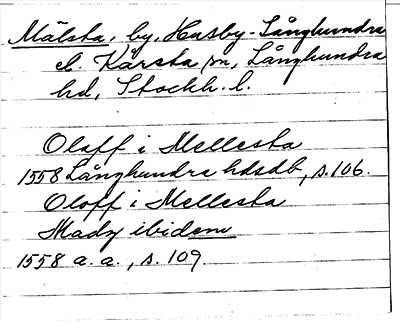 Mälsta, by, Husby-Långhundra
el. Kårsta sn, Långhundra
hd, Stockh. l.
Oloff i Mellesta
1558 Långhundra hdsdb, s. 106.
Oloff i Mellesta
Madz ibidem
1558 a. a., s. 109.